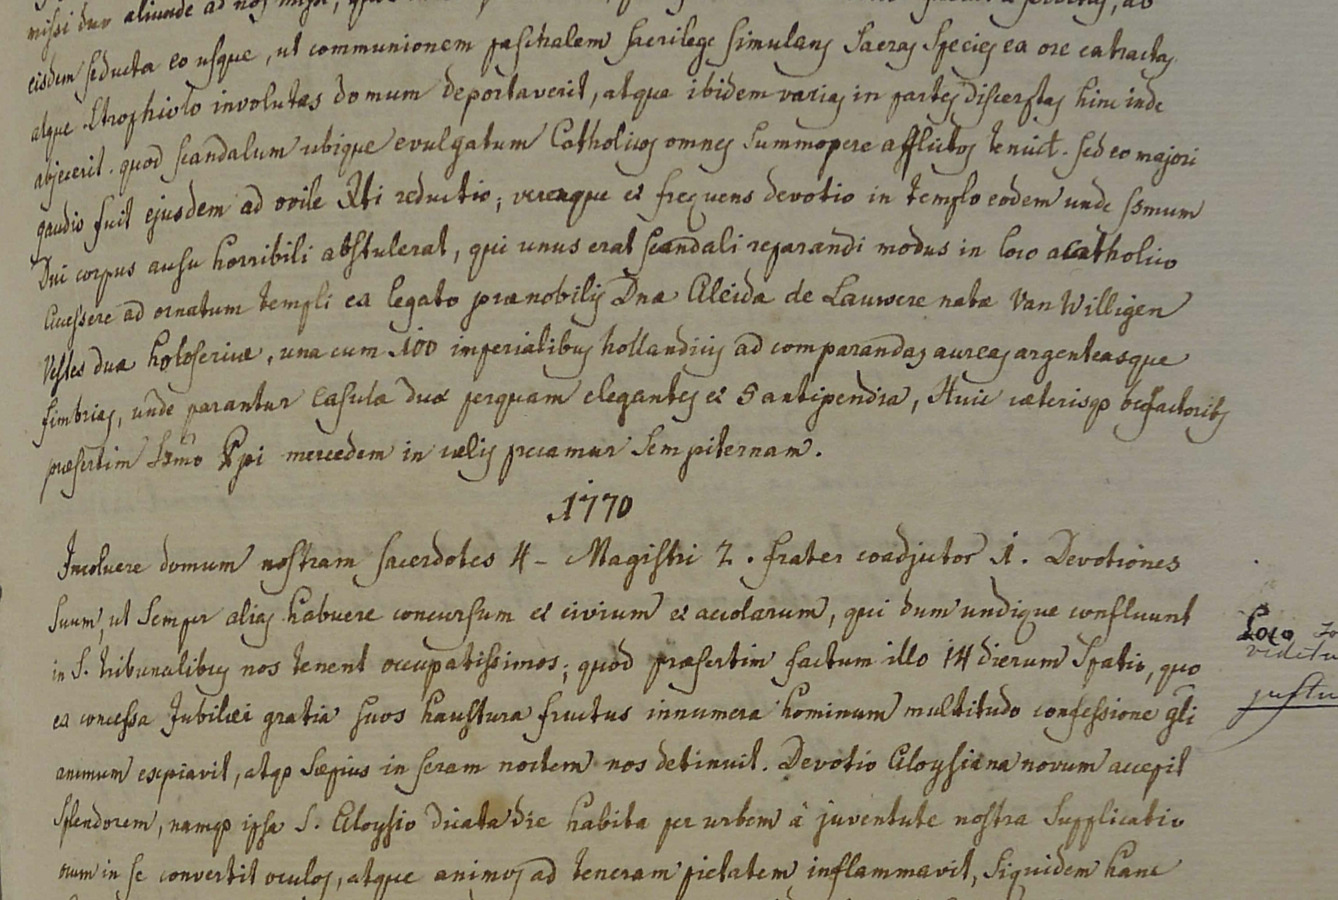 aliunde ad nos
eisdem seducta eo usque, ut communionem paschalem sacrilege simulans Sacras Species ea ore extractas
atque Strophiolo involutas domum deportaverit, atque ibidem varias in partes discerptas hinc inde
abjecerit. quod scandalum ubique evulgatum Catholicos omnes summopere afflictos tenuit. sed eo majori
gaudio fuit ejusdem ad ovile Xti reductio; veraque et frequens devotio in templo eodem unde ssmum
Dni corpus ausu horribili abstulerat, qui unus erat scandali reparandi modus in loco acatholico
Accessere ad ornatum templi ex legato praenobilis Dnae Aleida de Lauwere nata Van Willigen
Vestes duae holosericae, una cum 100 imperialibus hollandicis ad comparandas aureas argenteasque
fimbrias, unde parantur Casulae duae perquam elegantes et 5 antipendia, Huic caeterisq bnfactoribs
praesertim Rsmo Epi mercedem in caelis precamur Sempiternam.
1770
Incoluere domum nostram Sacerdotes 4 - Magistri 2. frater coadjutor 1. Devotiones
suum, ut semper alias habuere concursum et civium et accolarum, qui dum undique confluunt
in S. tribunalibus nos tenent occupatissimos; quod praesertim factum illo 14 dierum Spatio, quo
ex concessa Jubilaei gratia suos haustura fructus innumera hominum multitudo confessione gli
animum expiavit, atq saepius in seram noctem nos detinuit. Devotio Aloysiana novum accepit
splendorem, namq ipsa S. Aloysio dicata die habita per urbem à juventute nostra supplicatio
oum in se convertit oculos, atque animos ad teneram pietatem inflammavit, siquidem hanc
Loco
videtu
justu